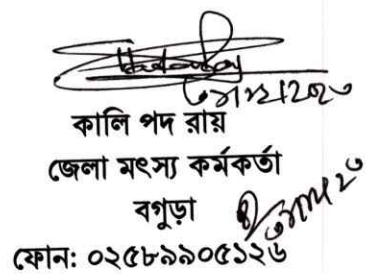 কালি পদ রায়
জেলা মৎস্য কর্মকর্তা
বগুড়া
ফোন: ০২৫৮৯৯০৫১২৬